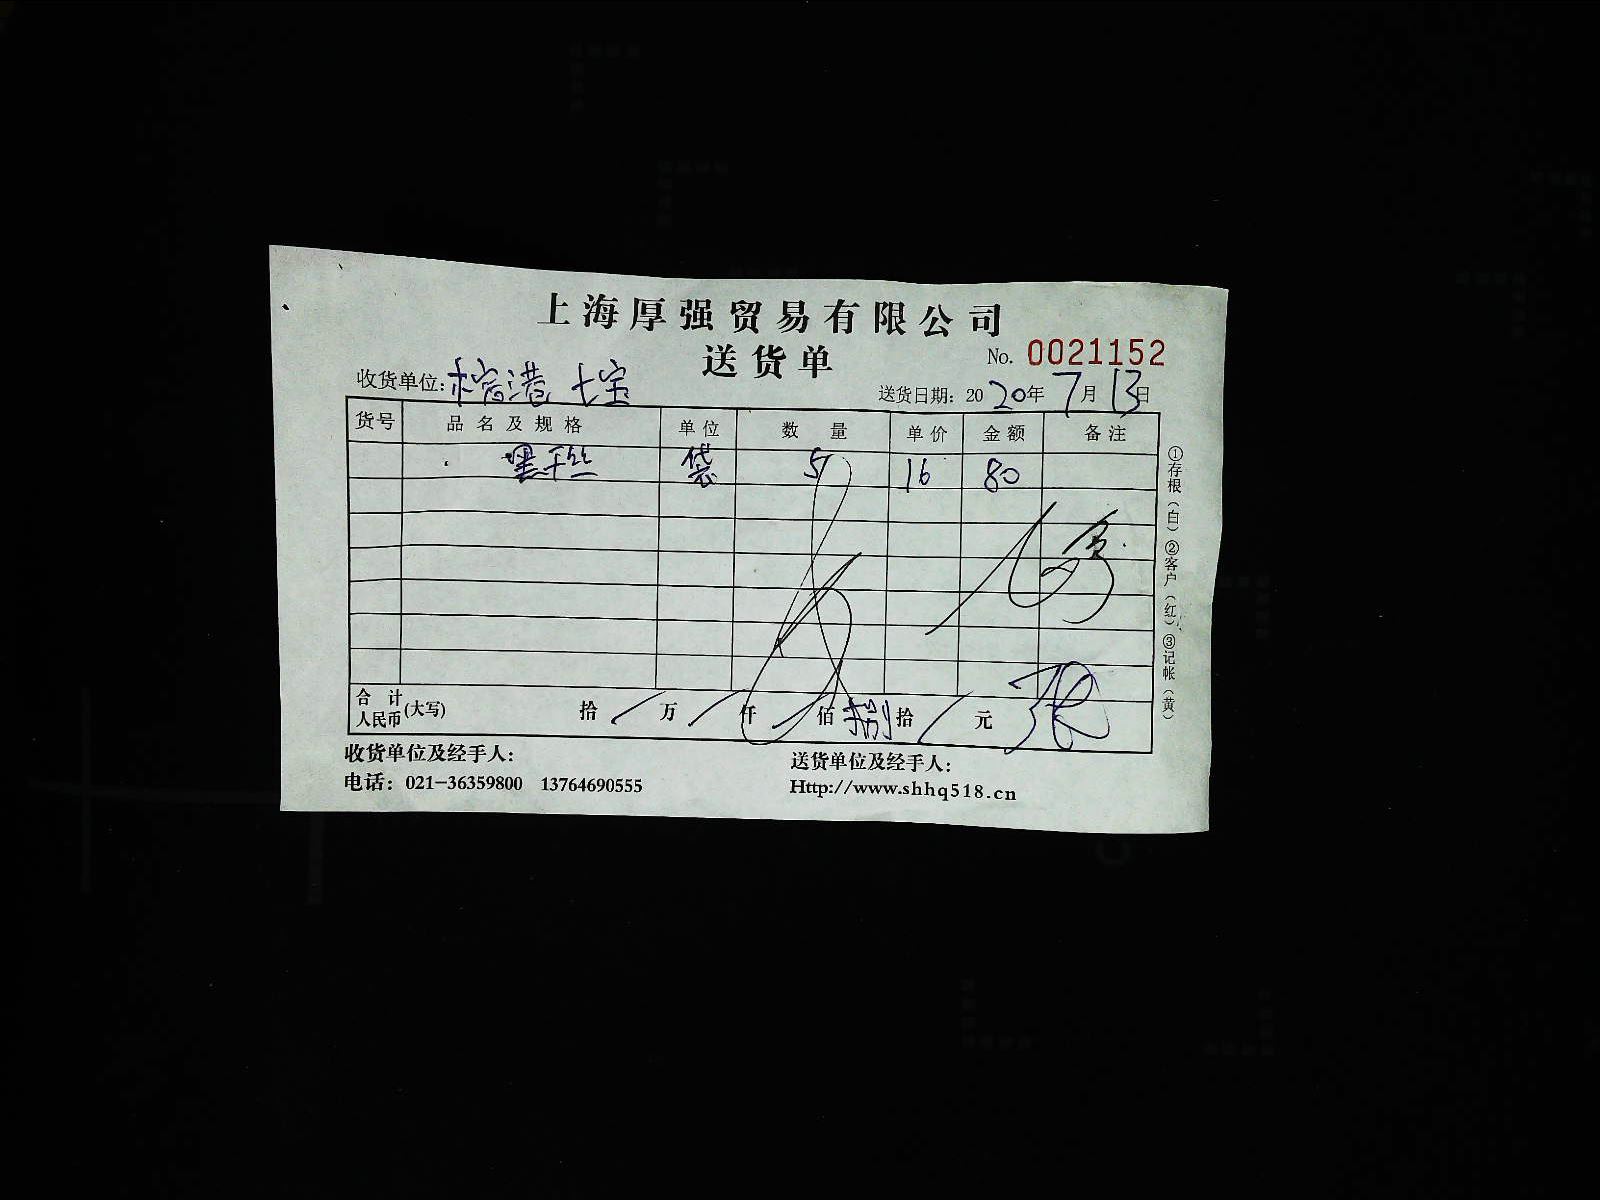 上海厚强贸易有限公司
送货单
No. 0021152
收货单位: 港 七宝
送货日期: 2020年7月13日
货号 品名及规格 单位 数量 单价 金额 备注
黑千丝 袋 5 16 80
合计人民币(大写) 拾 / 万 / 仟 / 佰 捌 拾 / 元
收货单位及经手人:
送货单位及经手人:
电话: 021-36359800 13764690555
Http://www.shhq518.cn
①存根(白)②客户(红)③记帐(黄)